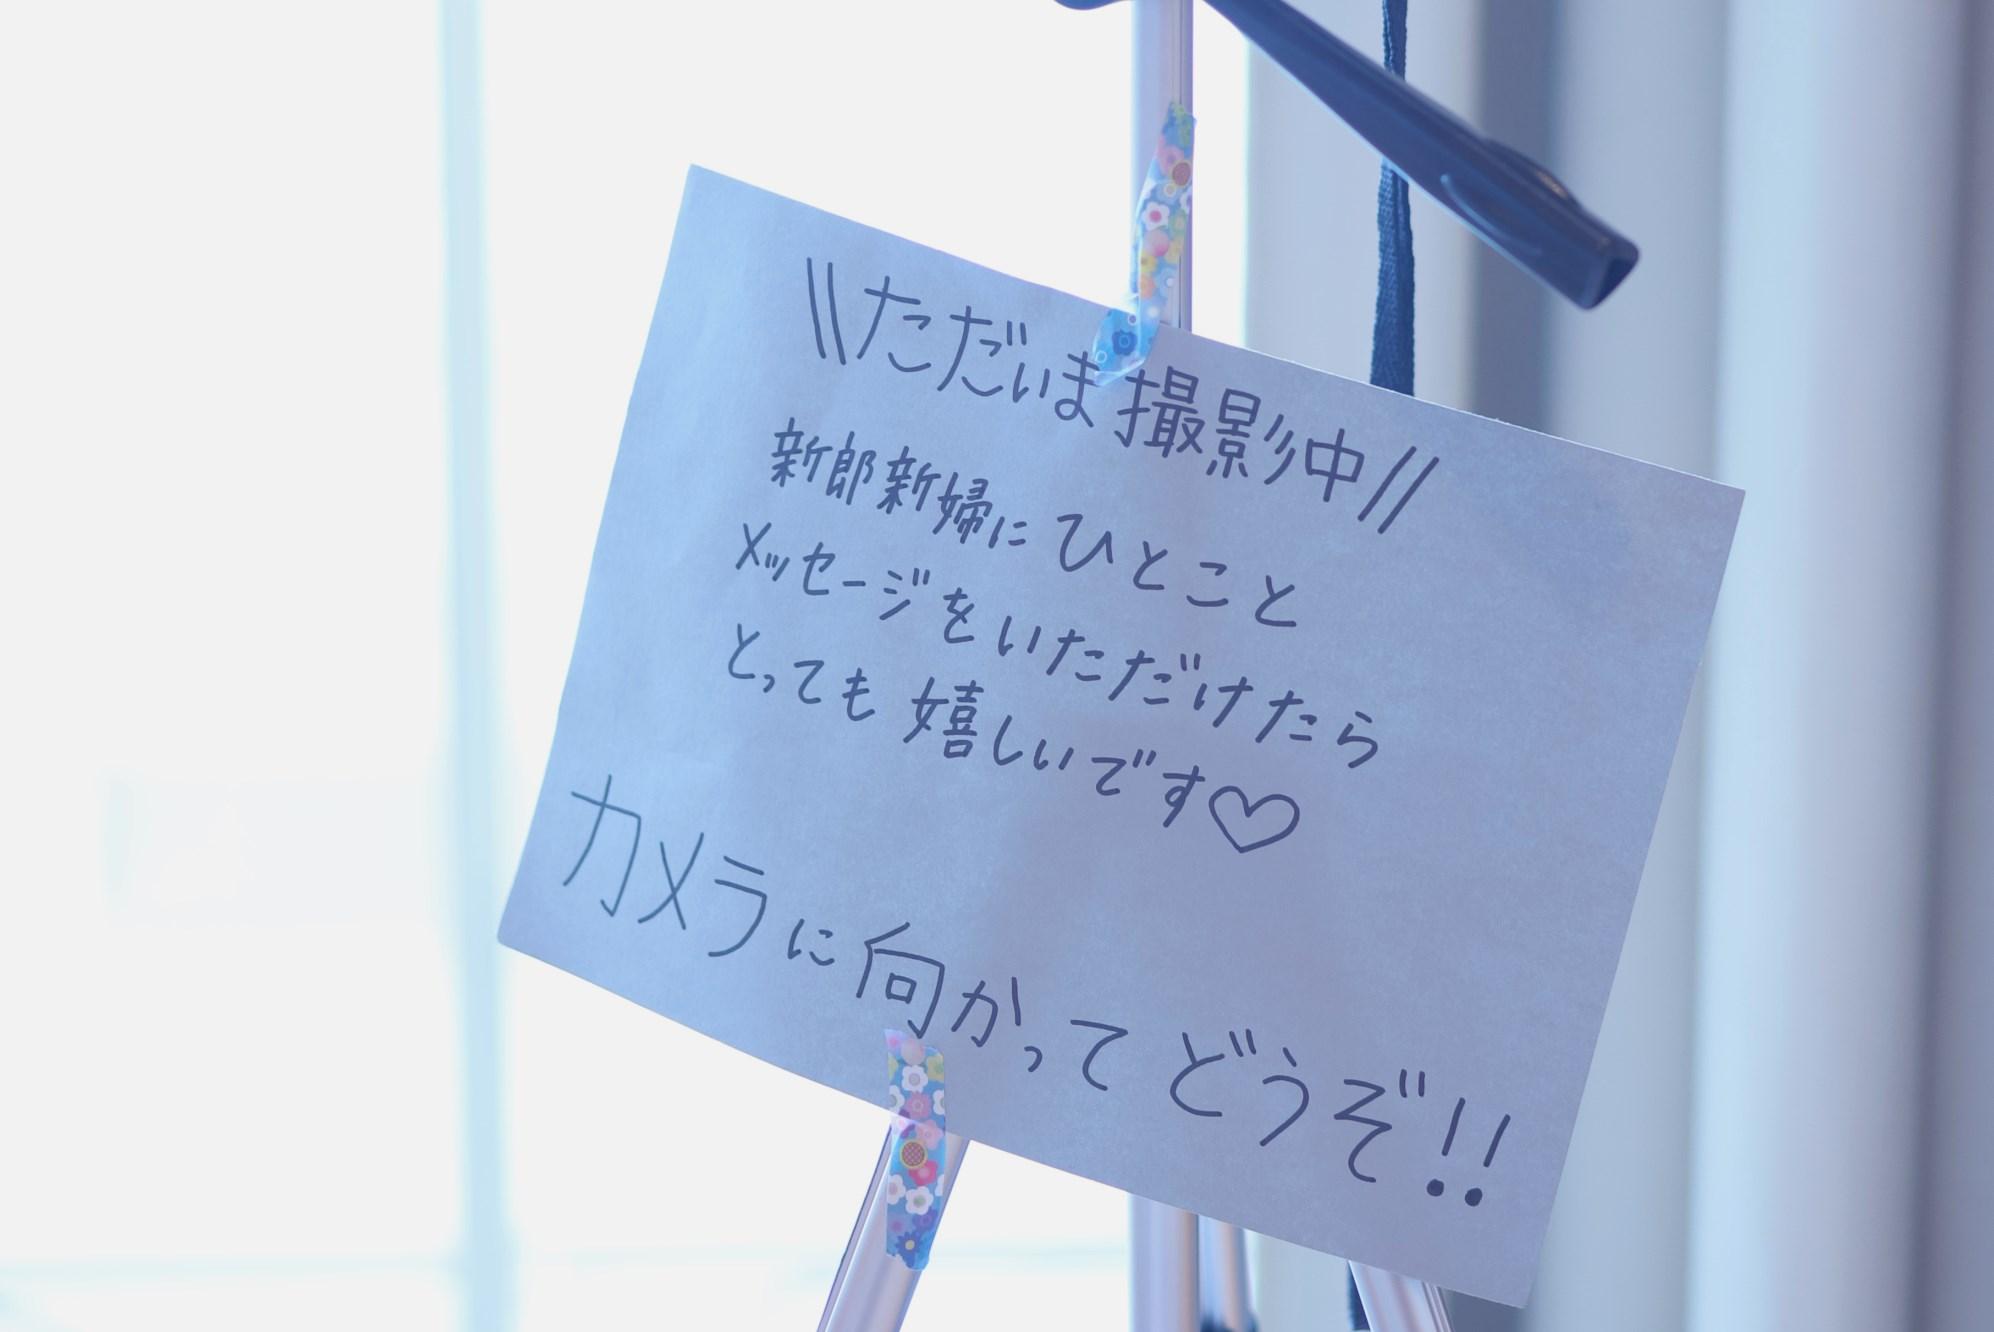 \\ただいま撮影中//
新郎新婦にひとこと
メッセージをいただけたら
とっても嬉しいです♡
カメラに向かってどうぞ!!